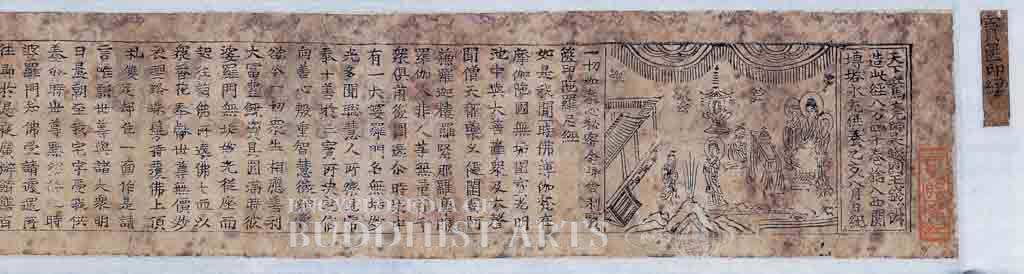 寶篋印經
天下兵馬大元帥吳越國王錢俶
造此經八万四千卷捨入西關
塼塔永充供養乙亥八月日紀
一切如來心秘密全身舍利寶
篋印陀羅尼經
如是我聞一時佛薄伽梵在
摩伽陀國無垢園寶光明
池中與大菩薩衆及大聲
聞僧天龍藥叉健闥婆阿
蘇羅迦樓羅緊那羅摩睺
羅伽人非人等無量百千
衆俱前後圍遶爾時衆中
有一大婆羅門名無垢妙
光多聞聰慧人所樂見常
奉十善於三寶所決定信
向善心殷重智慧微細常
欲令一切衆生相應善利
大富豐饒資具圓滿時彼
婆羅門無垢妙光從座而
起往詣佛所遶佛七匝以
衆香花奉獻世尊無價妙
衣瓔珞珠鬘持覆佛上頂
礼雙足却住一面作是請
言唯願世尊與諸大衆明
日晨朝至我宅中受我供
養尒時世尊默然許之時
婆羅門知佛受請遽還所
住即於是夜廣辦餚膳百
ENCYCLOPEDIA OF
BUDDHIST ARTS